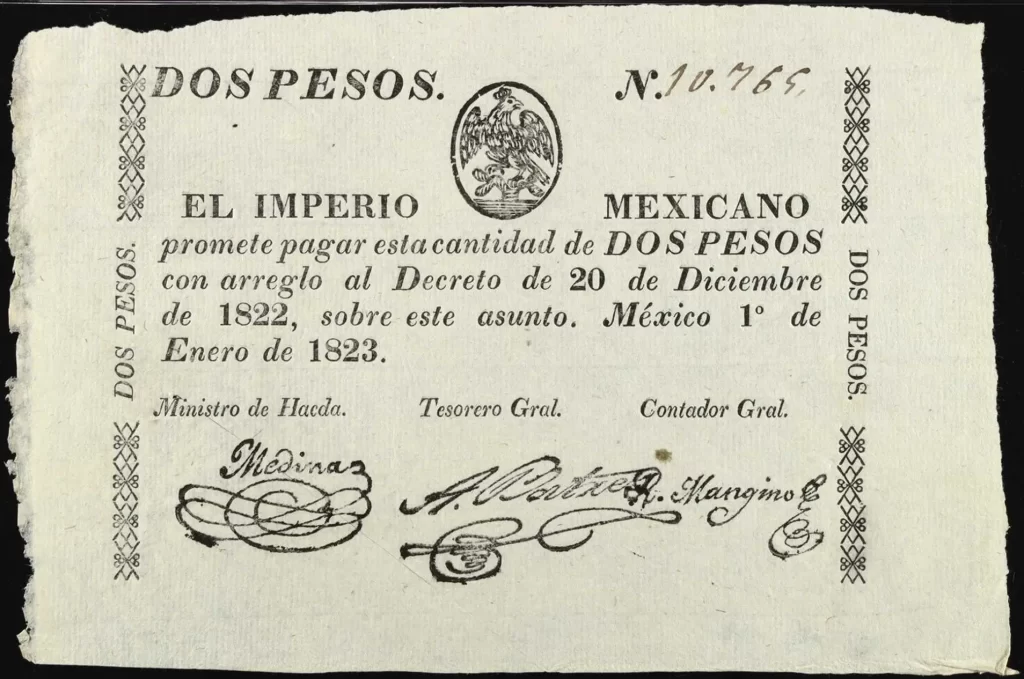 DOS PESOS.
N. 10.765.
EL IMPERIO MEXICANO
promete pagar esta cantidad de DOS PESOS
con arreglo al Decreto de 20 de Diciembre
de 1822, sobre este asunto. México 1º de
Enero de 1823.
DOS PESOS.
DOS PESOS.
Ministro de Hacda. Tesorero Gral. Contador Gral.
Medina
A. R. Mangino